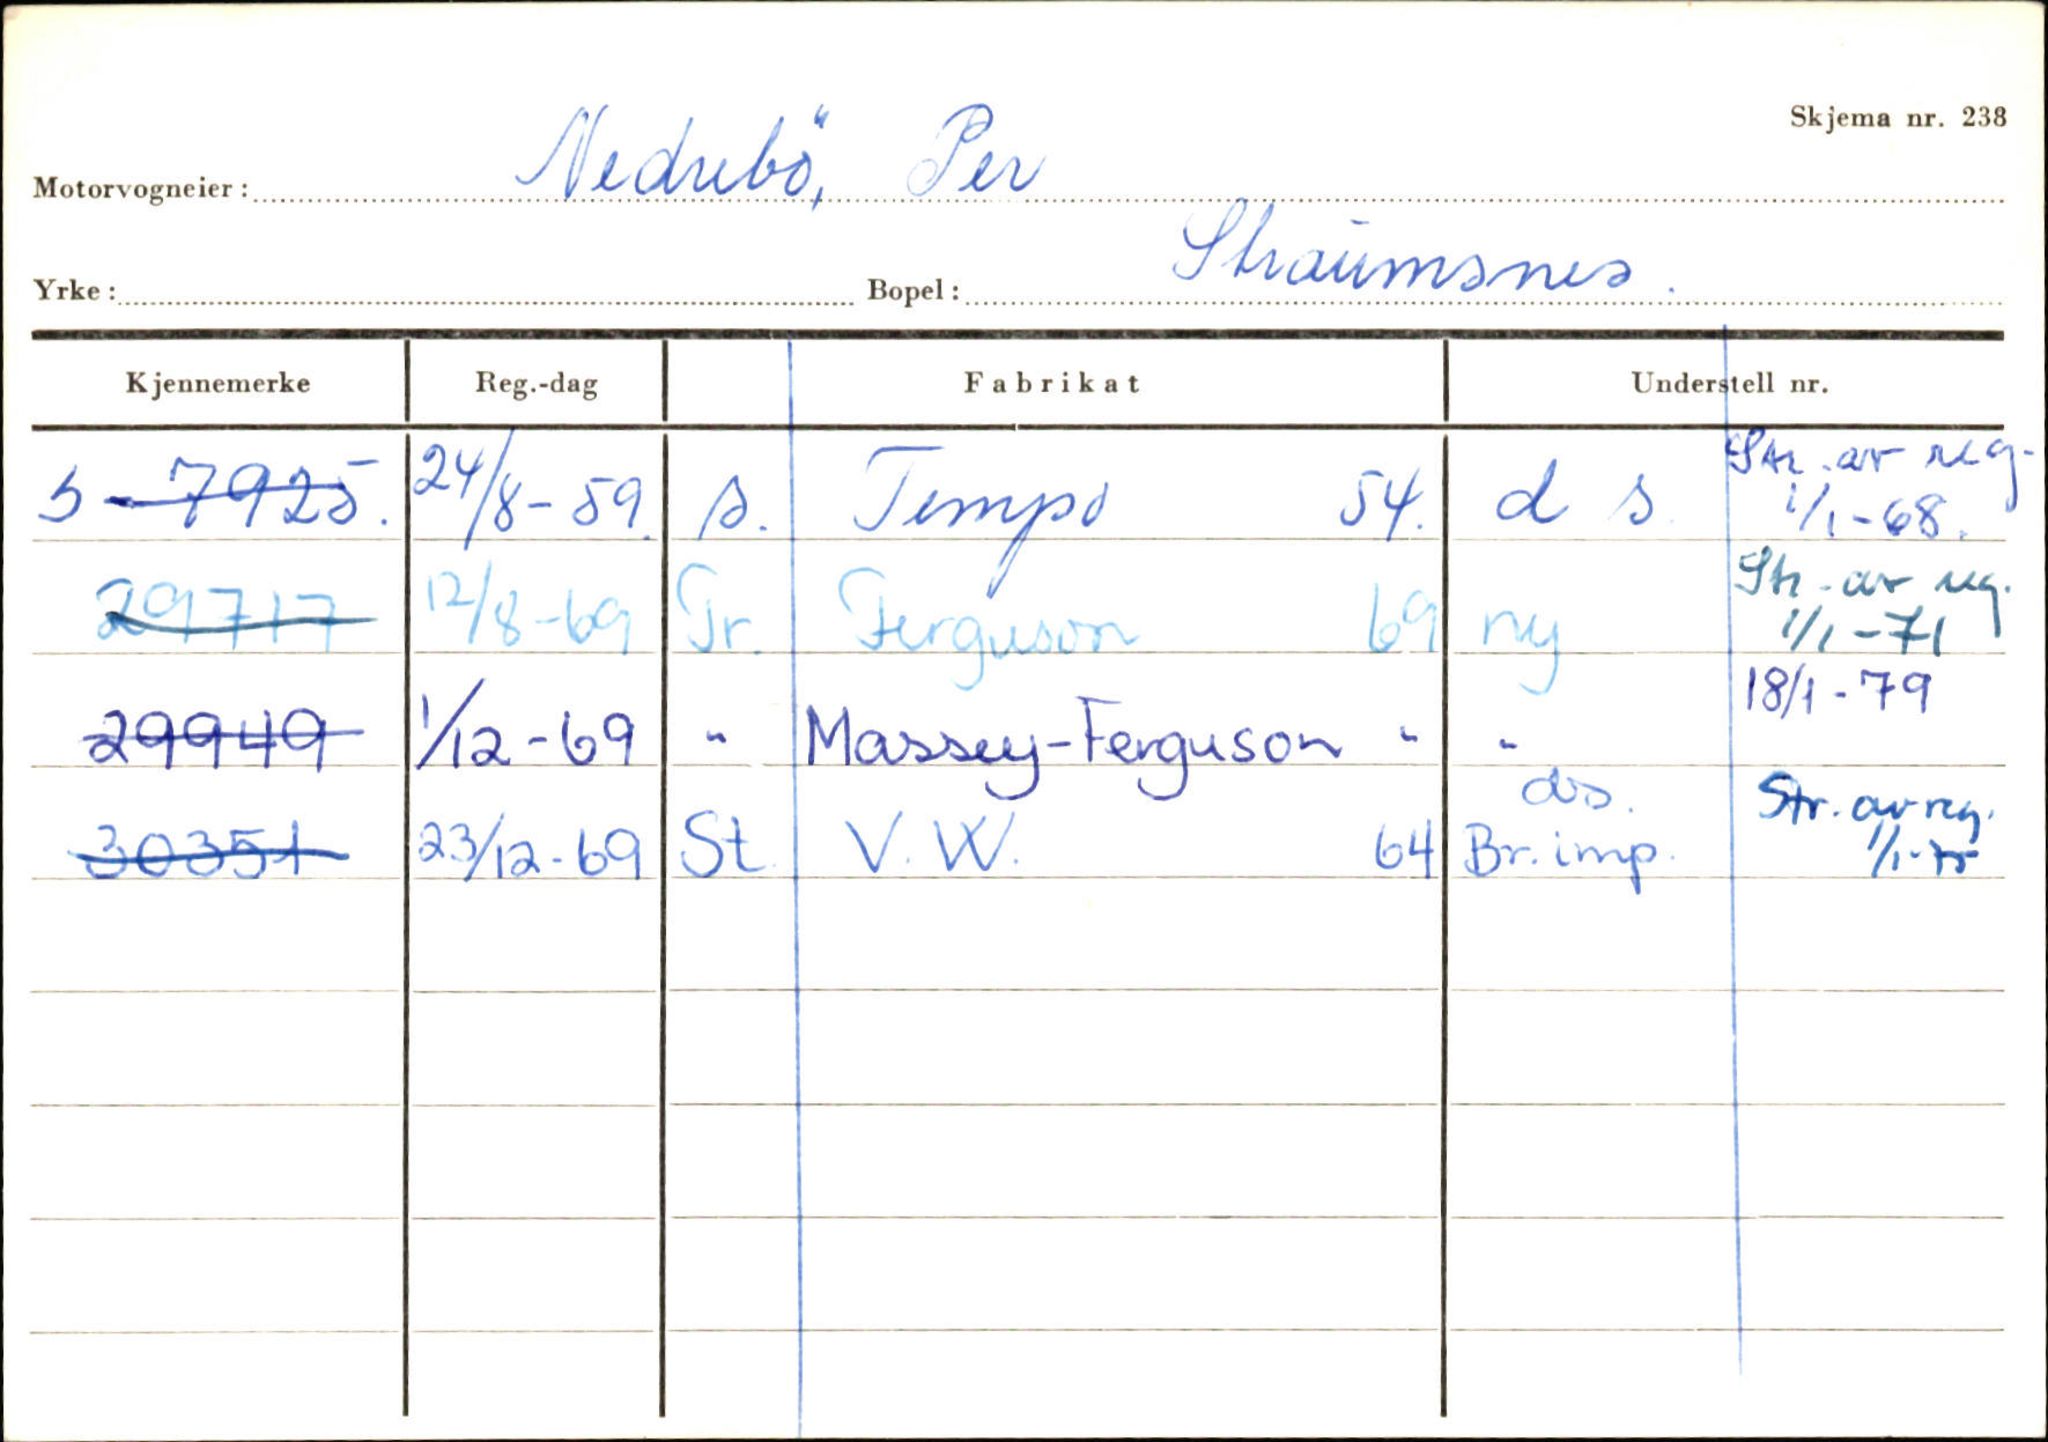 Skjema nr. 238
Motorvogneier: Nedrebö, Per
Yrke: Bopel: Straumsnes.
Kjennemerke Reg.-dag Fabrikat Understell nr.
S - 7925. 24/8-59. s. Tempo 54. d s. Str. av reg.
1/1-68.
29717 12/8-69 Tr. Ferguson 69 ny Str. av reg.
1/1-71
29949 1/12-69 " Massey-Ferguson " " 18/1-79
ds. Str. av reg.
30351 23/12-69 St. V.W. 64 Br.imp. 1/1-75